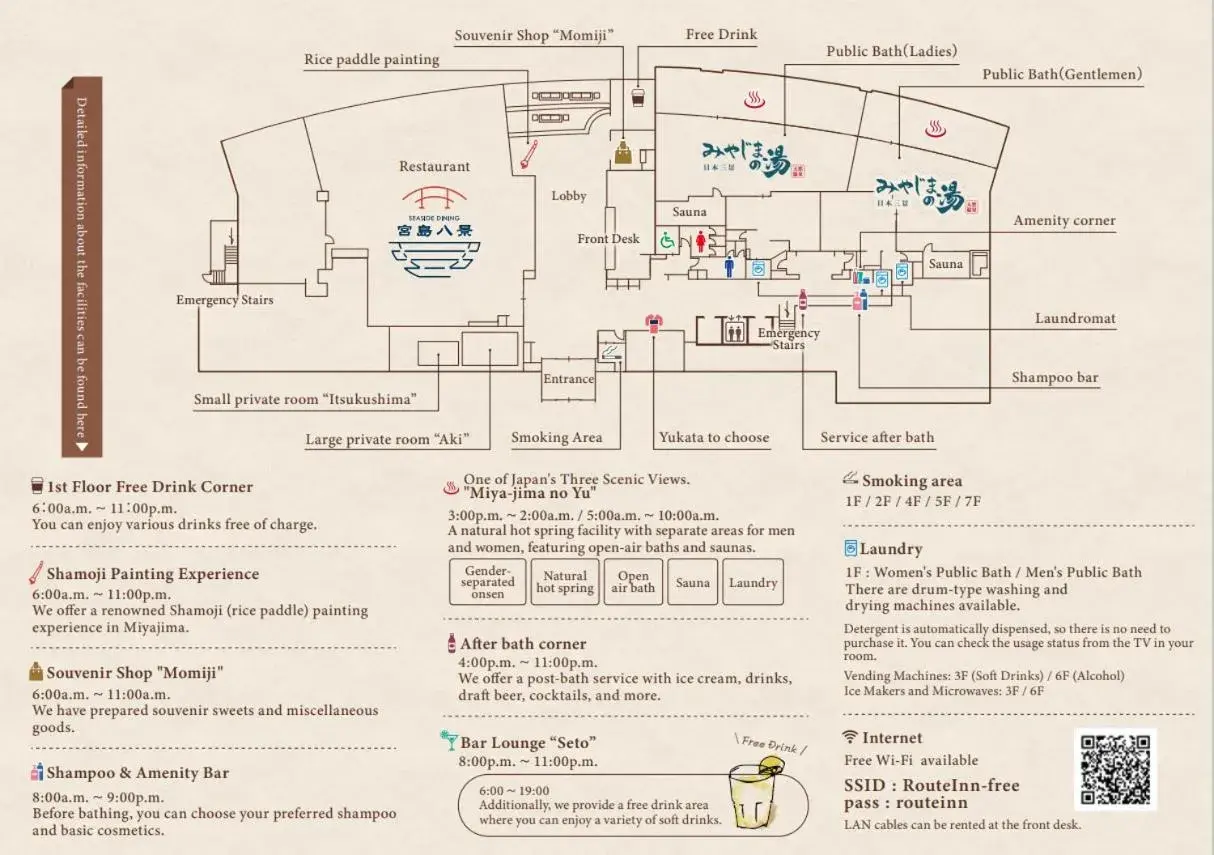 Souvenir Shop “Momiji”
Free Drink
Rice paddle painting
Public Bath(Ladies)
Public Bath(Gentlemen)
Detailed information about the facilities can be found here ▼
Restaurant
SEASIDE DINING
宮島八景
Lobby
Front Desk
みやじまの湯
日本三景
みやじまの湯
日本三景
Sauna
Amenity corner
Sauna
Emergency Stairs
Emergency
Stairs
Laundromat
Entrance
Shampoo bar
Small private room “Itsukushima”
Large private room “Aki”
Smoking Area
Yukata to choose
Service after bath
1st Floor Free Drink Corner
6:00a.m. ~ 11:00p.m.
You can enjoy various drinks free of charge.
Shamoji Painting Experience
6:00a.m. ~ 11:00p.m.
We offer a renowned Shamoji (rice paddle) painting
experience in Miyajima.
Souvenir Shop "Momiji"
6:00a.m. ~ 11:00a.m.
We have prepared souvenir sweets and miscellaneous
goods.
Shampoo & Amenity Bar
8:00a.m. ~ 9:00p.m.
Before bathing, you can choose your preferred shampoo
and basic cosmetics.
One of Japan's Three Scenic Views.
"Miya-jima no Yu"
3:00p.m. ~ 2:00a.m. / 5:00a.m. ~ 10:00a.m.
A natural hot spring facility with separate areas for men
and women, featuring open-air baths and saunas.
Gender-
separated
onsen
Natural
hot spring
Open
air bath
Sauna
Laundry
After bath corner
4:00p.m. ~ 11:00p.m.
We offer a post-bath service with ice cream, drinks,
draft beer, cocktails, and more.
Bar Lounge “Seto”
8:00p.m. ~ 11:00p.m.
\ Free Drink /
6:00 ~ 19:00
Additionally, we provide a free drink area
where you can enjoy a variety of soft drinks.
Smoking area
1F / 2F / 4F / 5F / 7F
Laundry
1F : Women's Public Bath / Men's Public Bath
There are drum-type washing and
drying machines available.
Detergent is automatically dispensed, so there is no need to
purchase it. You can check the usage status from the TV in your
room.
Vending Machines: 3F (Soft Drinks) / 6F (Alcohol)
Ice Makers and Microwaves: 3F / 6F
Internet
Free Wi-Fi available
SSID : RouteInn-free
pass : routeinn
LAN cables can be rented at the front desk.